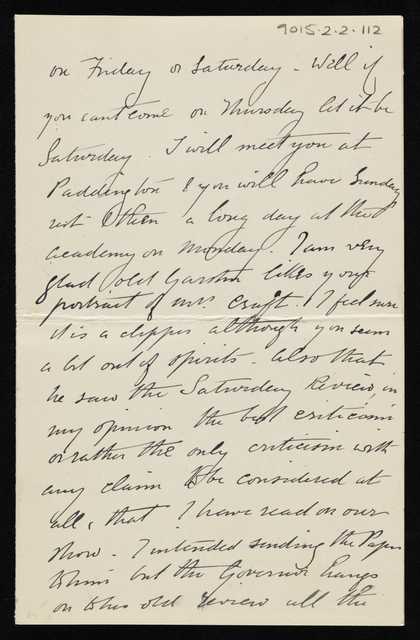 9015-2-2-112
on Friday or Saturday - Well if
you cant come on Thursday let it be
Saturday. I will meet you at
Paddington & you will have Sunday
rest & then a long day at the
academy on Monday. I am very
glad old Garstin likes your
portrait of Mrs. Craft. I feel sure
it is a clipper although you seem
a bit out of spirits. Also that
he saw the Saturday Review, in
my opinion the best criticism
or rather the only criticism with
any claim to be considered at
all, that I have read on our
show. I intended sending the Paper
to him but the Governor hangs
on to his old review all the